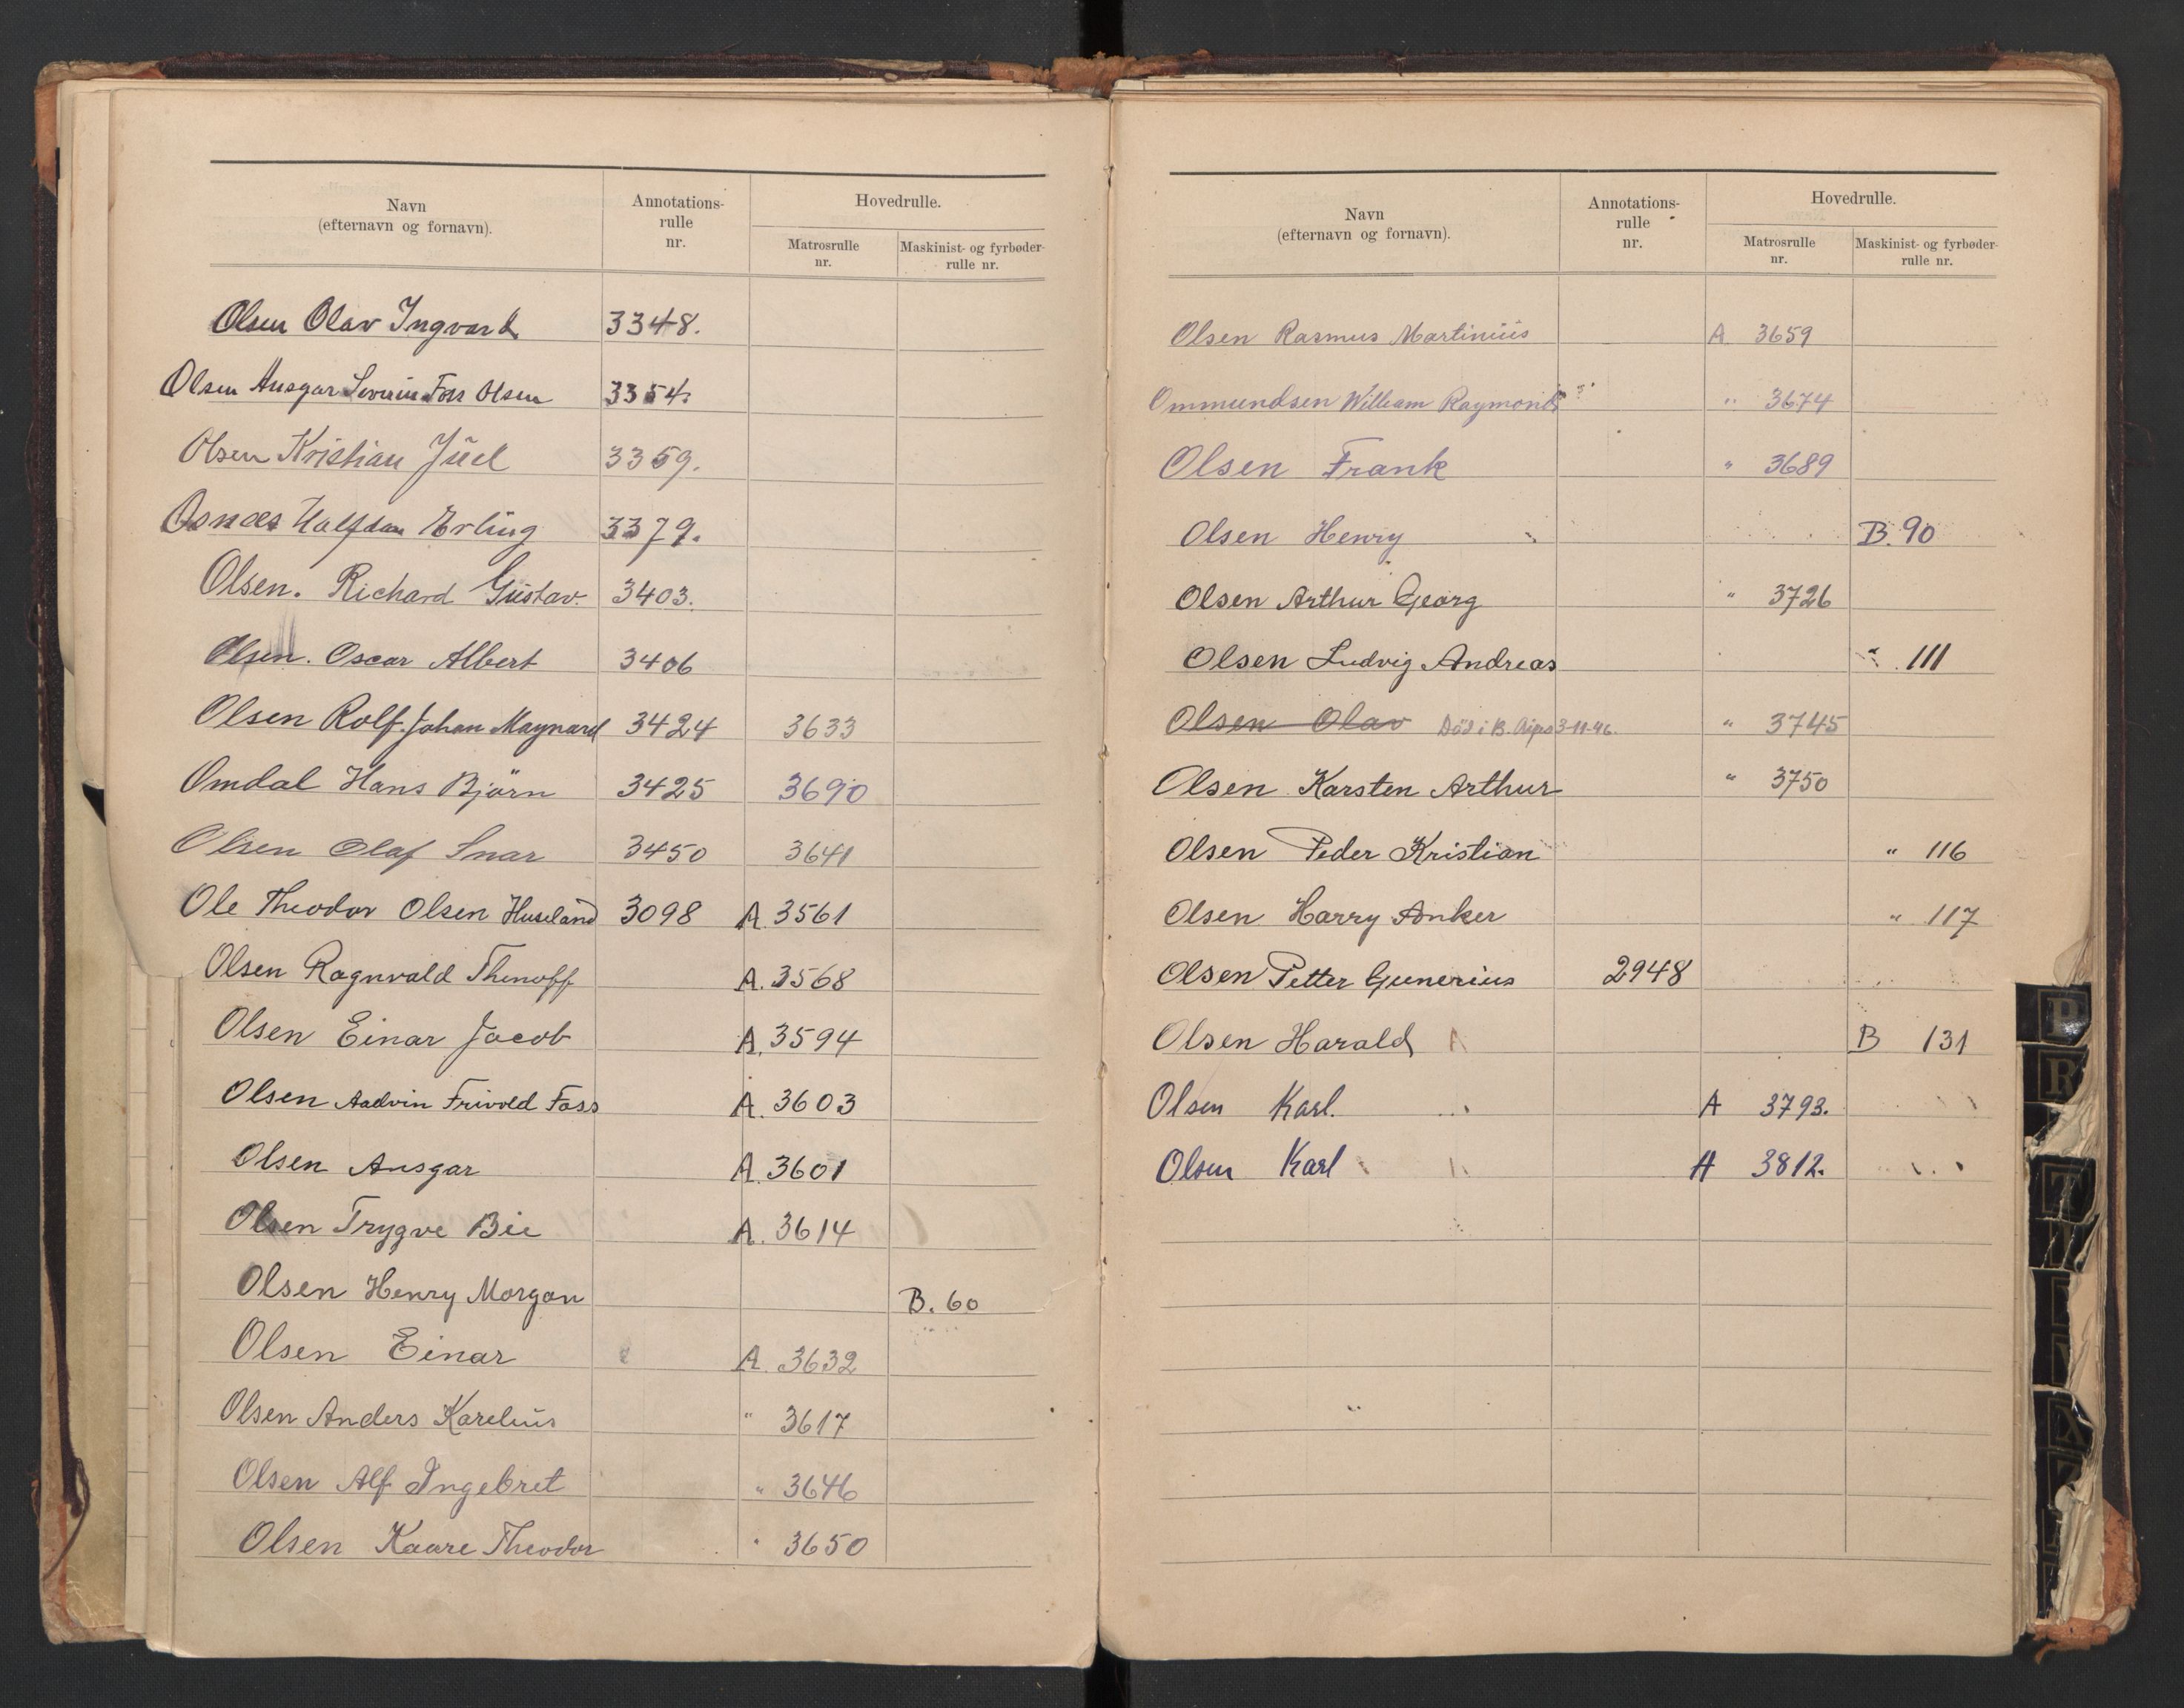 Navn
(efternavn og fornavn).
Annotations-
rulle
nr.
Hovedrulle.
Matrosrulle
nr.
Maskinist- og fyrbøder-
rulle nr.
Olsen Olav Ingvard 3348.
Olsen Ansgar Severin Foss Olsen 3354.
Olsen Kristian Juel 3359.
Osnæs Halfdan Erling 3379.
Olsen. Richard Gustav. 3403.
Olsen. Oscar Albert 3406
Olsen Rolf Johan Maynard 3424 3633
Omdal Hans Björn 3425 3690
Olsen Olaf Snar 3450 3641
Ole Theodor Olsen Huseland 3098 A. 3561
Olsen Ragnvald Thenoff A. 3568
Olsen Einar Jacob A. 3594
Olsen Aadvin Frivold Foss A. 3603
Olsen Ansgar A. 3601
Olsen Trygve Bie A. 3614
Olsen Henry Morgan B. 60
Olsen Einar A. 3632
Olsen Anders Karelius " 3617
Olsen Alf Ingebret " 3646
Olsen Kaare Theodor " 3650
Navn
(efternavn og fornavn).
Annotations-
rulle
nr.
Hovedrulle.
Matrosrulle
nr.
Maskinist- og fyrbøder-
rulle nr.
Olsen Rasmus Martinius A 3659
Ommundsen William Raymond " 3674
Olsen Frank " 3689
Olsen Henry B. 90
Olsen Arthur Georg " 3726
Olsen Ludvig Andreas " 111
Olsen Olav Död i B. Aires 3-11-46. " 3745
Olsen Karsten Arthur " 3750
Olsen Peder Kristian " 116
Olsen Harry Anker " 117
Olsen Petter Gunerius 2948
Olsen Harald B 131
Olsen Karl. A 3793.
Olsen Karl A 3812.
P
R
T